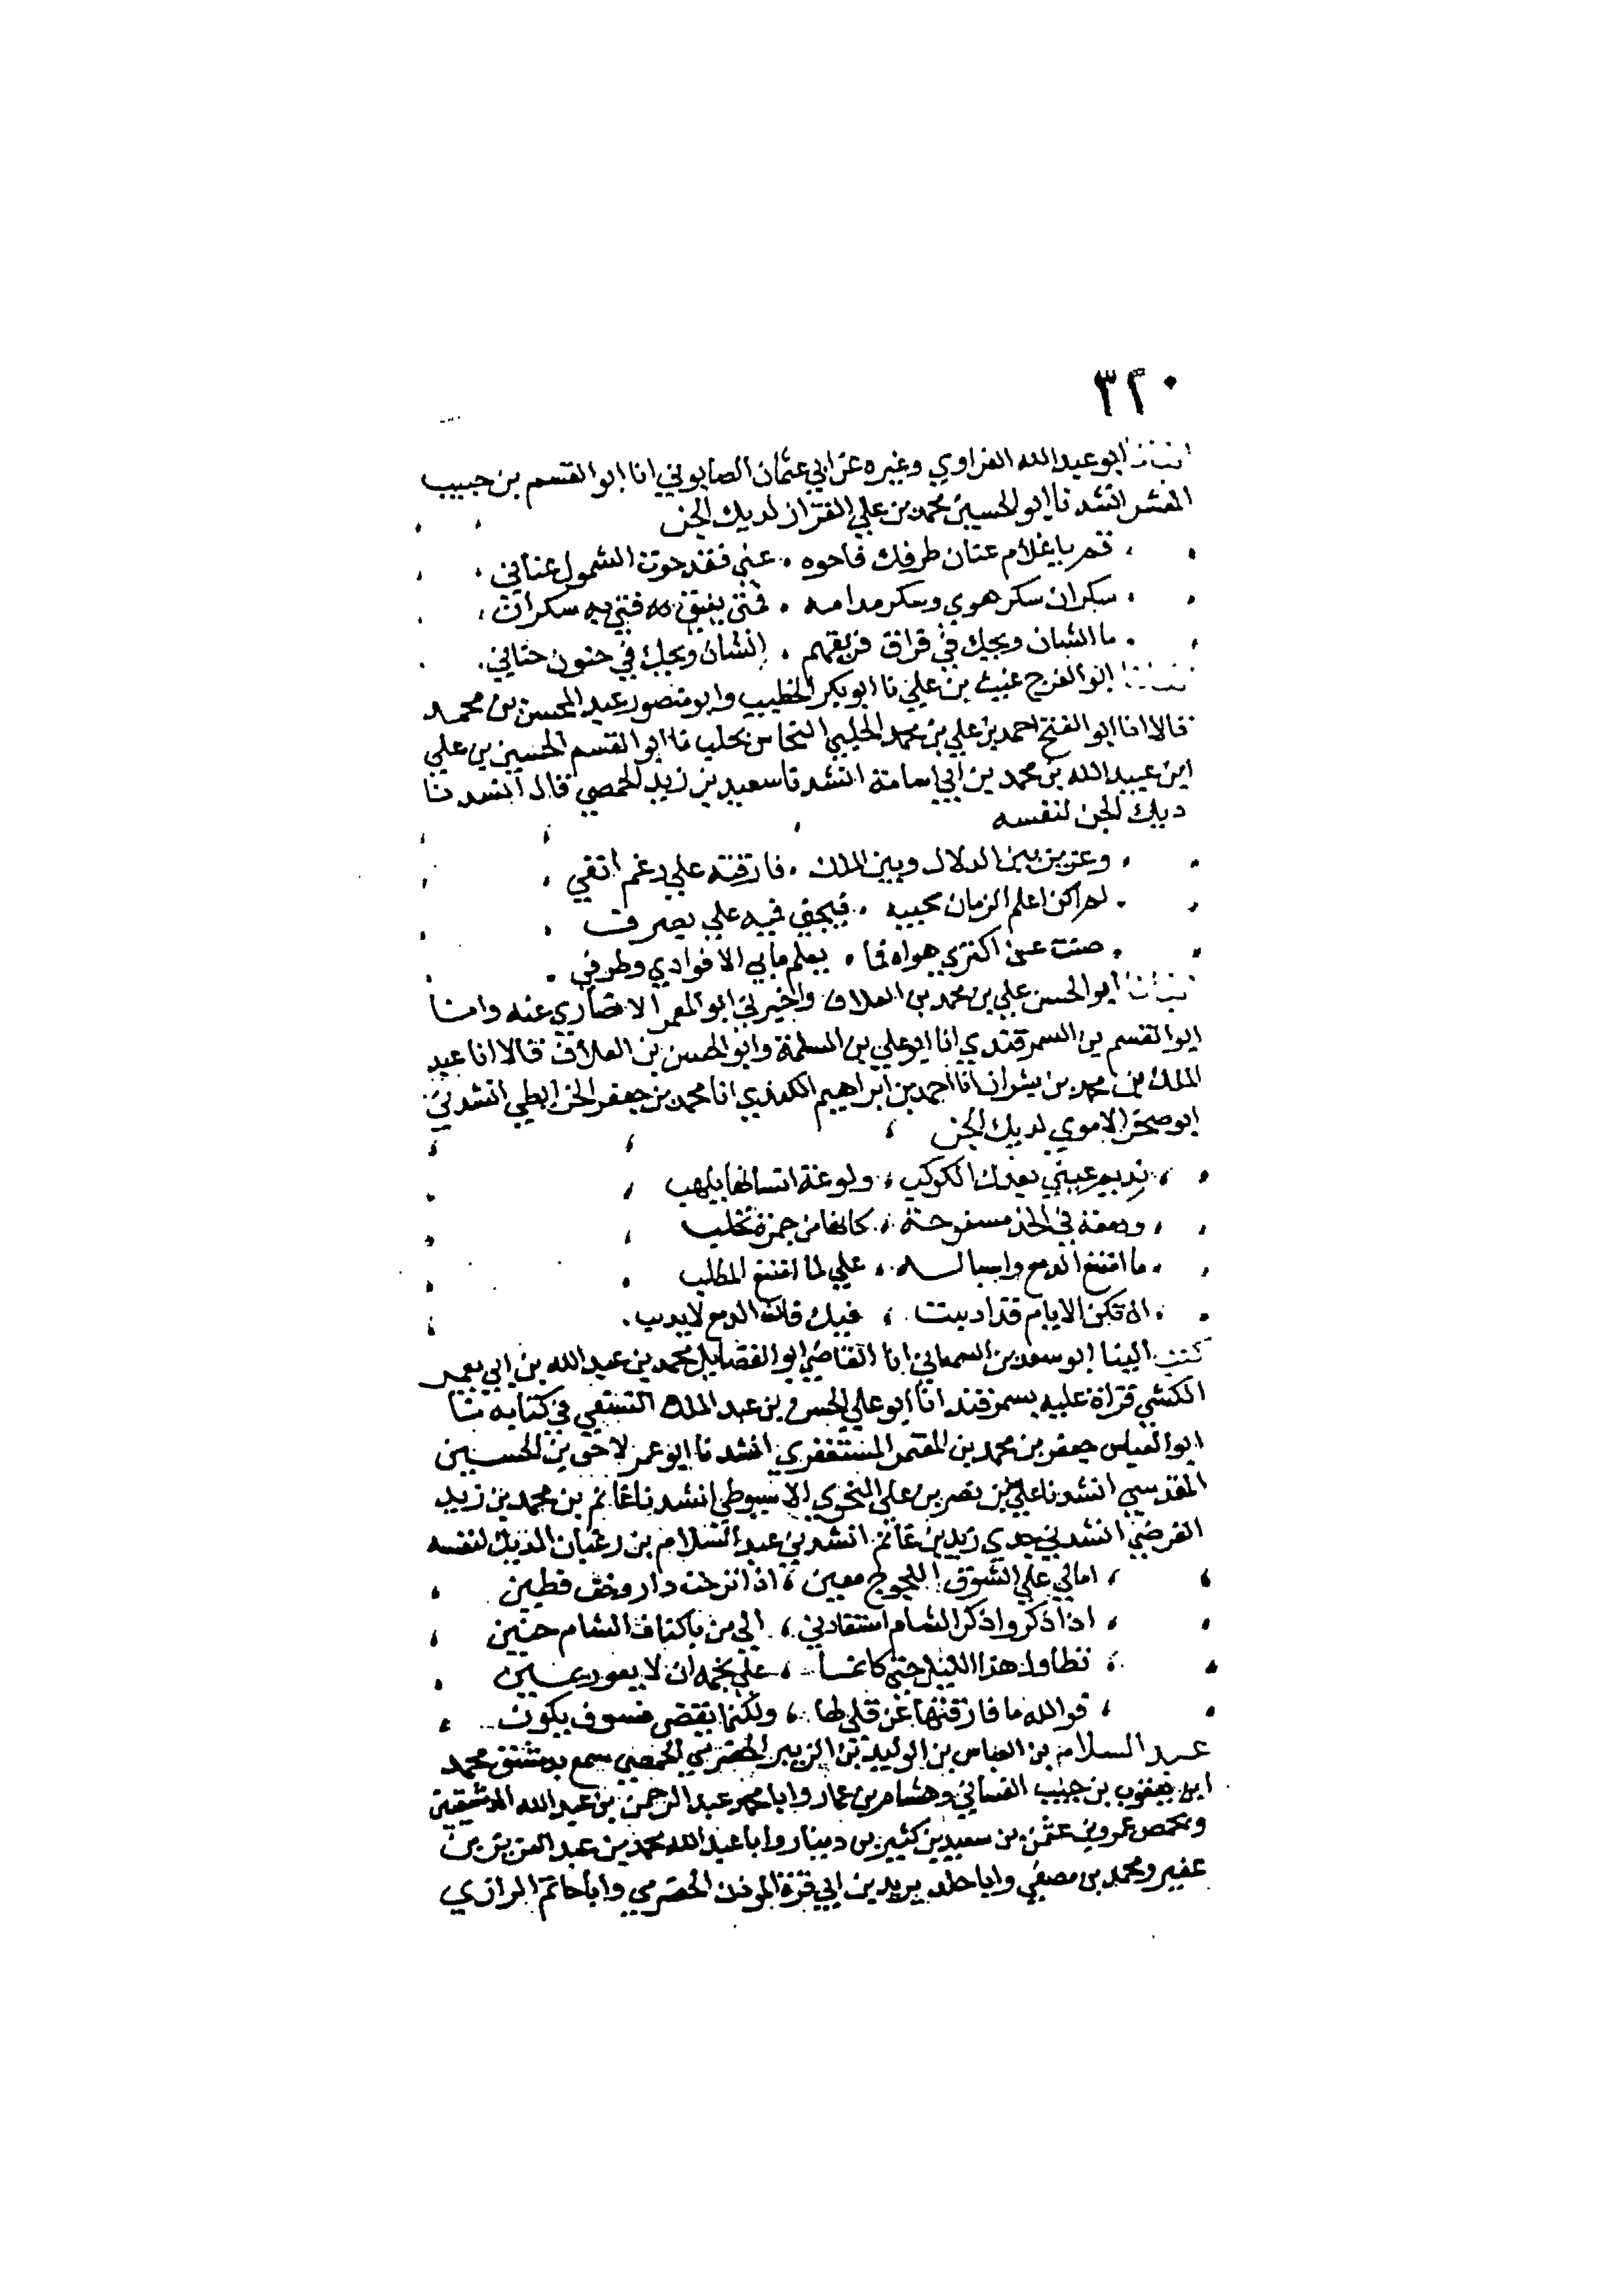 ٣٢٠
انبأنا ابو عبدالله الفراوي وغيره عن ابي عثمان الصابوني انا ابو القسم بن حبيب
المفسر انشدنا ابو الحسين محمد بن علي القزاز لديك الجن
قم يا غلام عنان طرفك فاحوه ، عني فقد حوت الشمول عناني
سكران سكر هوي وسكر مدامه ، فمتى يفيق به سكران
ما الشان ويحك في فراق فريقهم ، الشان ويحك في جنون جناني
ابو الفرج غيث بن علي نا ابو بكر الخطيب وابو منصور عبد المحسن بن محمد
قالا انا ابو الفتح احمد بن علي بن محمد الحلبي النحاس بحلب نا ابو القسم الحسين بن علي
ابن عبيد الله بن محمد بن ابي اسامة انشدنا سعيد بن زيد الحمصي قال انشدنا
ديك الجن لنفسه
وعزيز بين الدلال وبين الملك ، فارقته علي رغم انفي
لم اكن اعلم الزمان بحبيه ، فيه علي بصرف
صنت عن اكثري هواه فما ، يعلم ما بي الا فوادي وطرفي
انبأنا ابو الحسن علي بن محمد بن العلاف واخبرني ابو المعمر الانصاري عنه وانبا
ابو القسم بن السمرقندي انا ابو علي بن المسلمة وابو الحسن بن العلاف قالا انا عبد
الملك بن محمد بن بشران انا احمد بن ابراهيم الكندي انا محمد بن جعفر الخرايطي انشدني
ابو صخر الاموي لديك الجن
نديم عيني بعدك الكوكب ، ولوعة انسانها يلهب
ودمعة في الخد مسفوحة ، كانها من جمرة تحلب
ما اقنع الدمع واسباله ، علي لما امتنع المطلب
ان تكن الايام قد ادبت ، فيك فان الدمع لا يدب
كتب الينا ابو سعد بن السمعاني انا القاضي ابو الفضايل محمد بن عبد الله بن ابي
الكشي قراة عليه بسمرقند انا ابو علي الحسن بن عبد الملك النسفي في كتابه نبا
ابو العباس جعفر بن محمد بن المعتمر المستغفري انشدنا ابو عمر لاحق بن الحسين
المقدسي انشدنا علي بن نصر بن علي النحوي الاسيوطي انشدنا غانم بن محمد بن زيد
الفرضي انشدني جدي زيد بن غانم انشدني عبد السلام بن رغبان الديك لنفسه
امالي علي الشوق اللجوج معين ، اذا نزحت دار وخف قطين
اذا ذكروا ذكر الشام استقادني ، الي من باكناف الشام حنين
تطاول هذا الليل حتي كانما ، علي نجمه ان لا يعود يمين
فوالله ما فارقتها عن قلي لها ، ولكن ما يقضي فسوف يكون
عبد السلام بن العباس بن الوليد بن الزبير الحضرمي الحمصي سمع بدمشق محمد
ابن يعقوب بن حبيب الغساني وهشام بن عمار وابا محمد عبد الرحمن بن عبد الله الدمشقيين
وبحمص عمرو بن عثمن بن سعيد بن كثير بن دينار وابا عبد الله محمد بن عبد العزيز بن
عفير ومحمد بن مصفي وابا خلد يزيد بن ابي قرة الموذن الحضرمي وابا حاتم الرازي